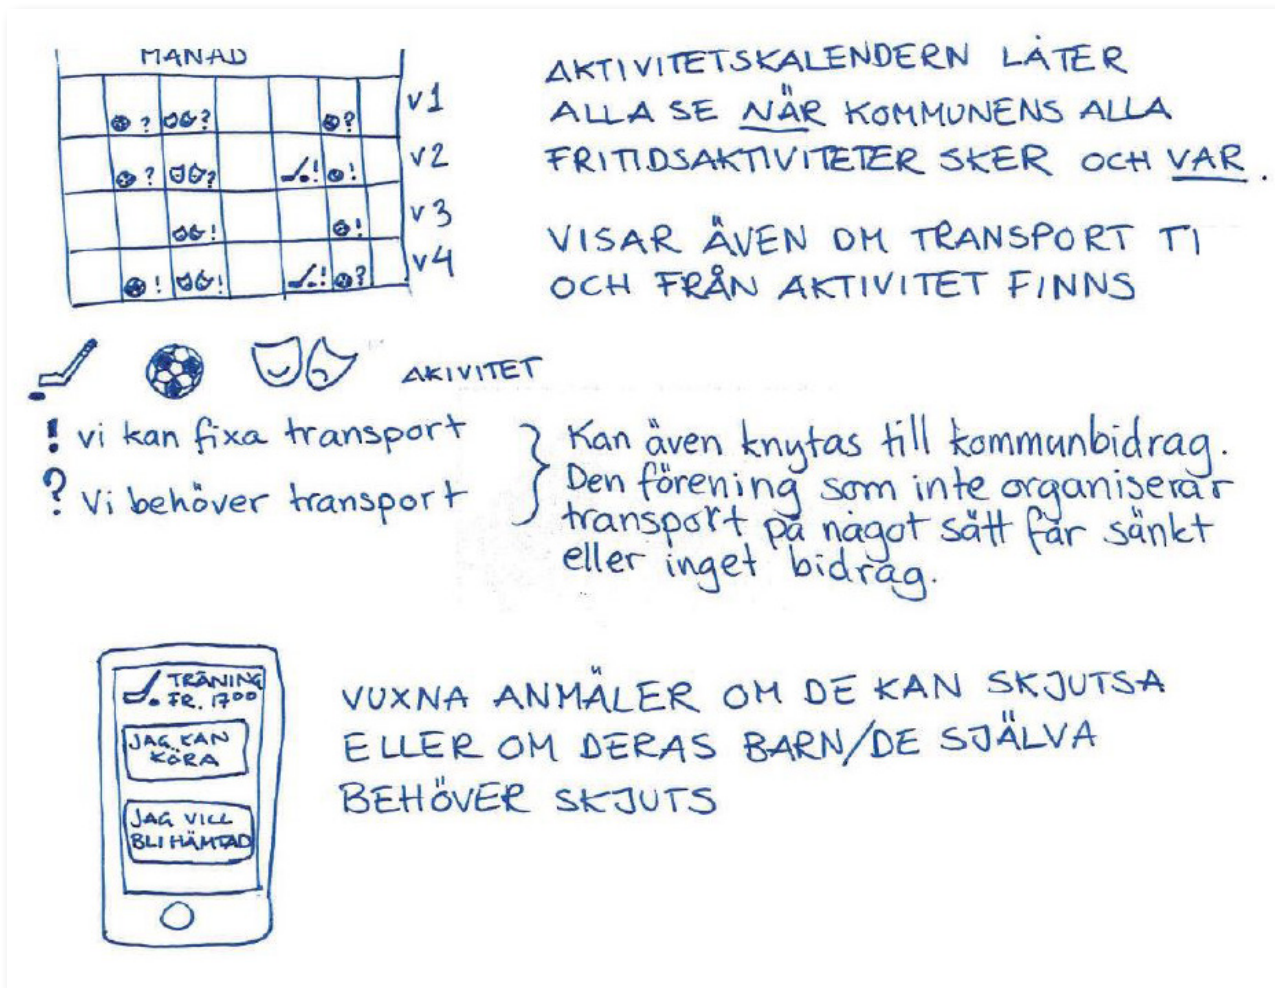 MÅNAD
? ? ?
v1
? ? ! !
v2
! !
v3
! ! ! ?
v4
AKTIVITETSKALENDERN LÅTER
ALLA SE NÄR KOMMUNENS ALLA
FRITIDSAKTIVITETER SKER OCH VAR.
VISAR ÄVEN OM TRANSPORT TI
OCH FRÅN AKTIVITET FINNS
AKIVITET
! vi kan fixa transport
? Vi behöver transport
Kan även knytas till kommunbidrag.
Den förening som inte organiserar
transport på något sätt får sänkt
eller inget bidrag.
TRÄNING
FR. 1700
JAG KAN
KÖRA
JAG VILL
BLI HÄMTAD
VUXNA ANMÄLER OM DE KAN SKJUTSA
ELLER OM DERAS BARN/DE SJÄLVA
BEHÖVER SKJUTS